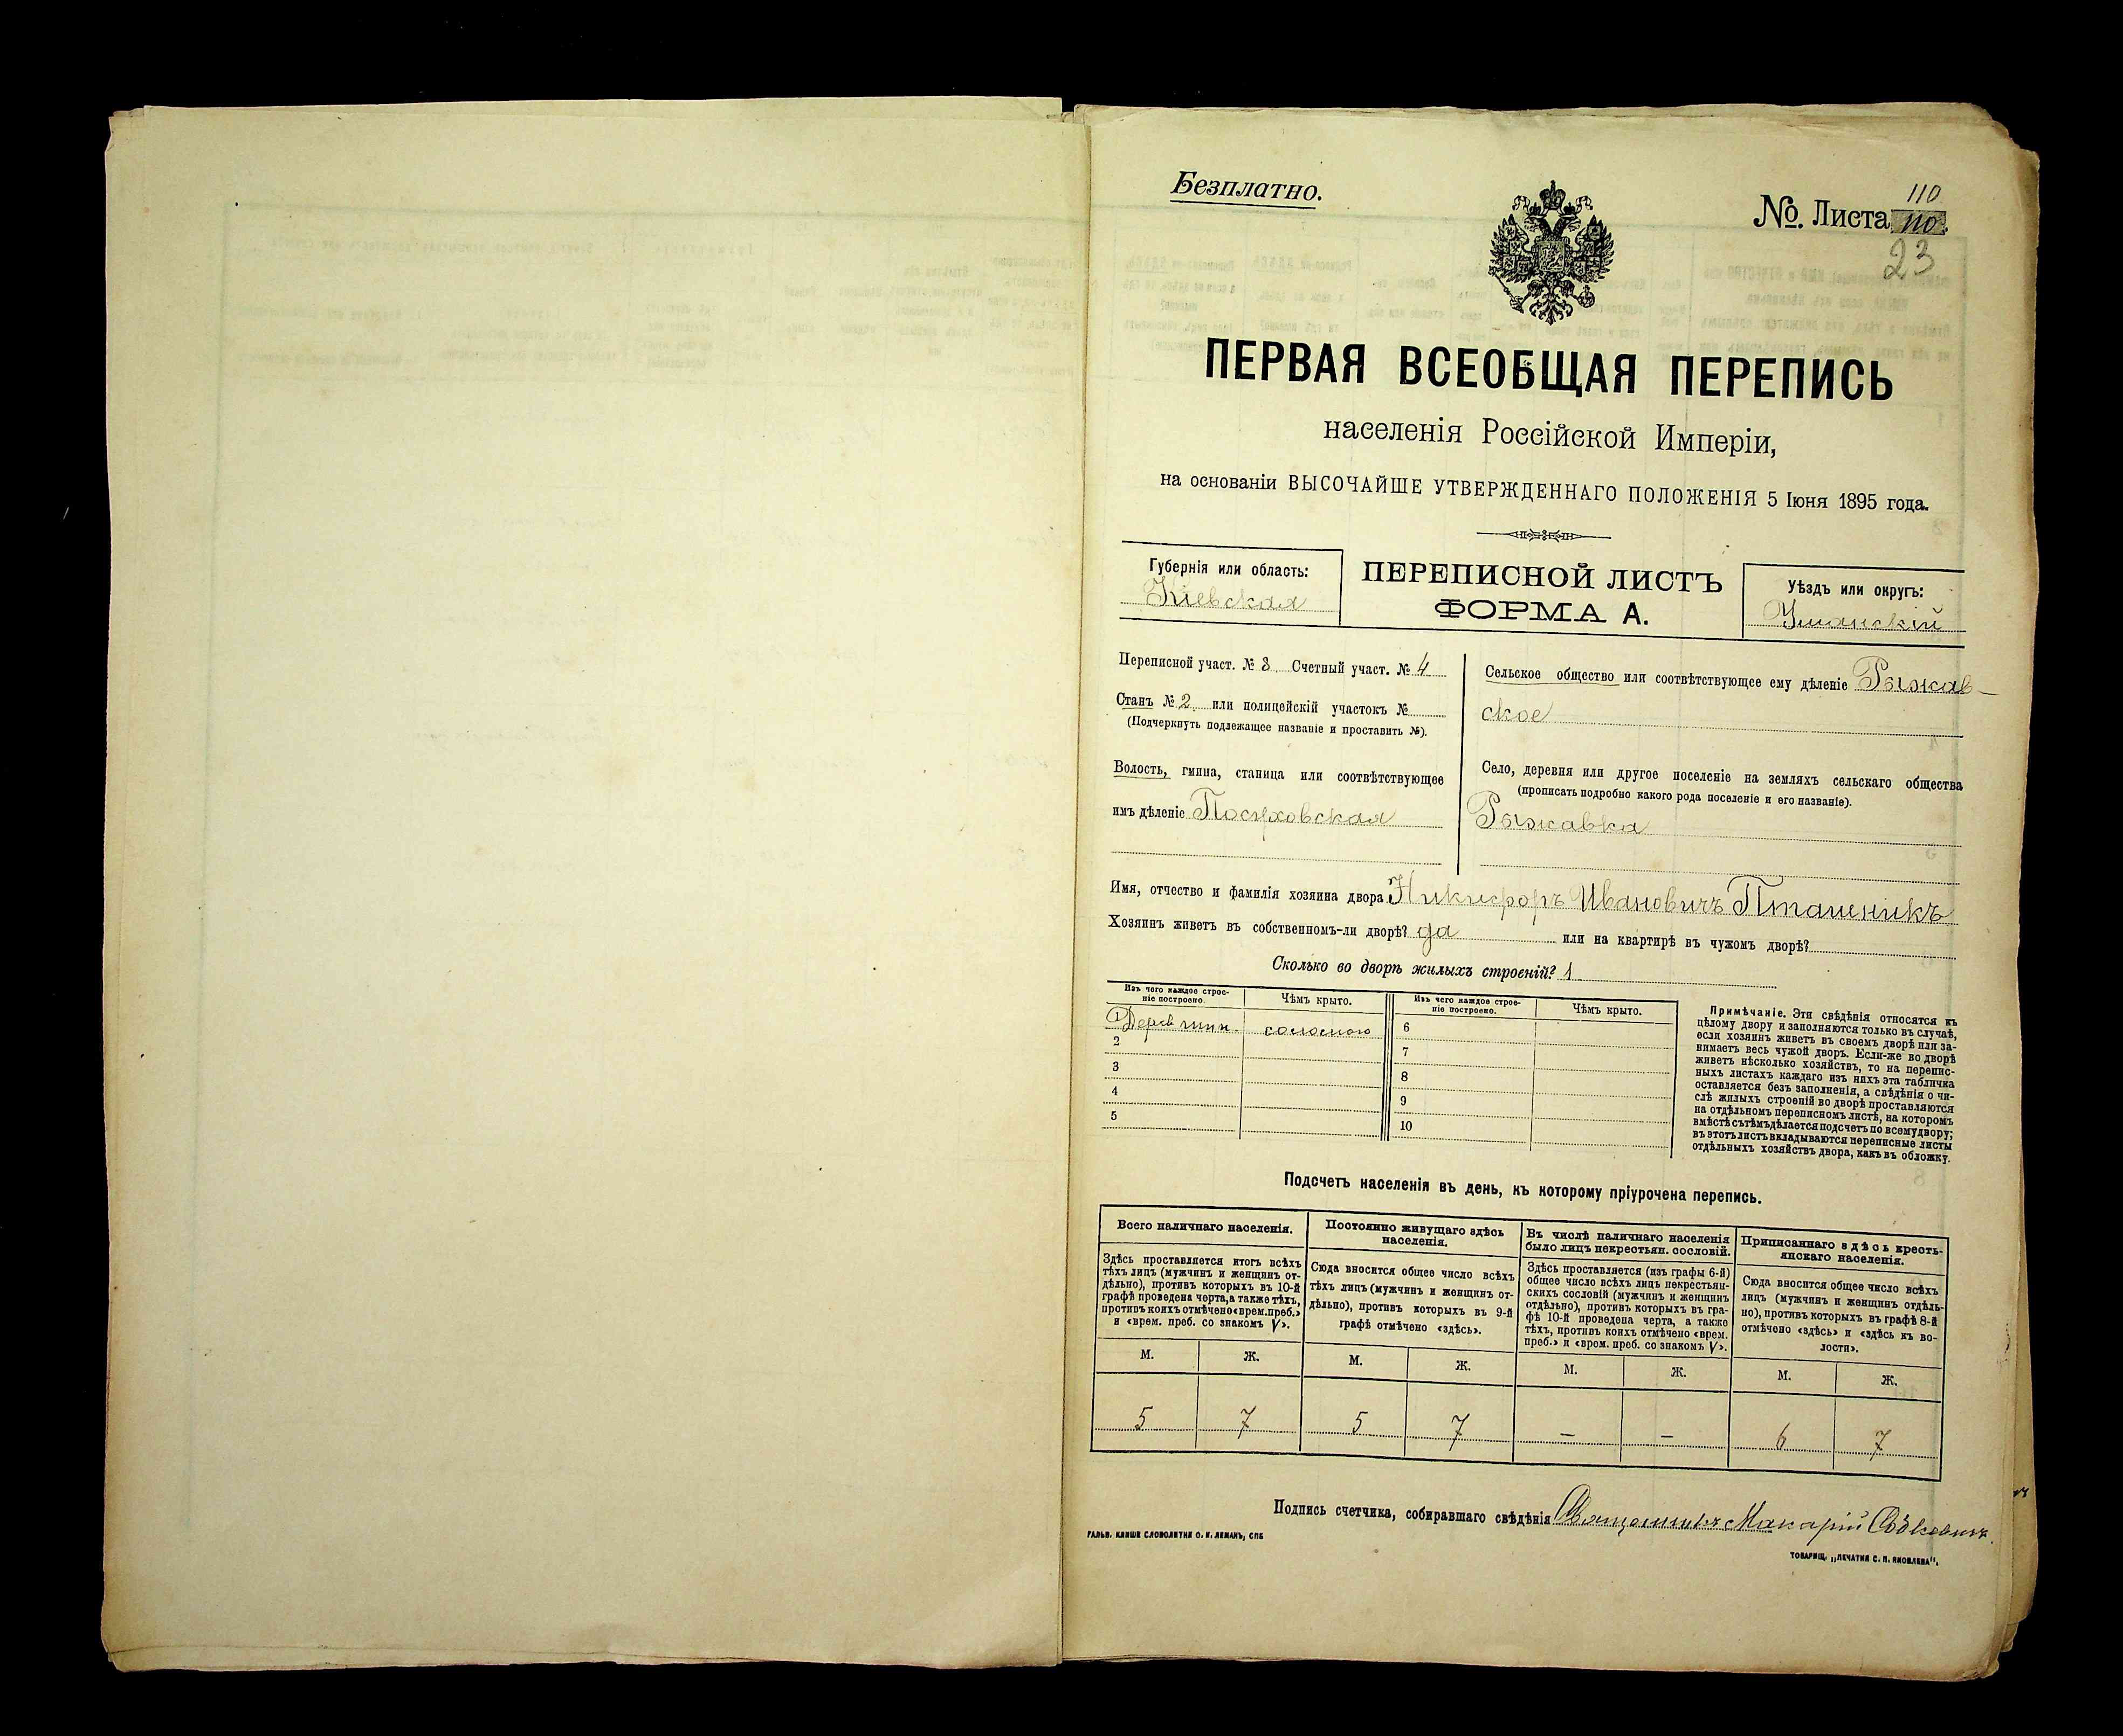 Безплатно.
№. Листа 110.
110
23
ПЕРВАЯ ВСЕОБЩАЯ ПЕРЕПИСЬ
населенія Россійской Имперіи,
на основаніи ВЫСОЧАЙШЕ УТВЕРЖДЕННАГО ПОЛОЖЕНІЯ 5 Іюня 1895 года.
Губернія или область:
Кіевская
ПЕРЕПИСНОЙ ЛИСТЪ
ФОРМА А.
Уѣздъ или округъ:
Уманскій
Переписной участ. № 3 Счетный участ. № 4
Станъ № 2 или полицейскій участокъ №
(Подчеркнуть подлежащее названіе и проставить №).
Волость, гмина, станица или соотвѣтствующее
имъ дѣленіе Посуховская
Сельское общество или соотвѣтствующее ему дѣленіе Рыжав-
ское
Село, деревня или другое поселеніе на земляхъ сельскаго общества
(прописать подробно какого рода поселеніе и его названіе).
Рыжавка
Имя, отчество и фамилія хозяина двора Никифоръ Ивановичъ Пташникъ
Хозяинъ живетъ въ собственномъ-ли дворѣ? да или на квартирѣ въ чужомъ дворѣ?
Сколько во дворѣ жилыхъ строеній? 1
Изъ чего каждое строе-
ніе построено.
Чѣмъ крыто.
Изъ чего каждое строе-
ніе построено.
Чѣмъ крыто.
1 Деревянн. соломою 6
2 7
3 8
4 9
5 10
Примѣчаніе. Эти свѣдѣнія относятся къ
цѣлому двору и заполняются только въ случаѣ,
если хозяинъ живетъ въ своемъ дворѣ или за-
нимаетъ весь чужой дворъ. Если-же во дворѣ
живетъ нѣсколько хозяйствъ, то на перепис-
ныхъ листахъ каждаго изъ нихъ эта табличка
оставляется безъ заполненія, а свѣдѣнія о чи-
слѣ жилыхъ строеній во дворѣ проставляются
на отдѣльномъ переписномъ листѣ, на которомъ
вмѣстѣ съ тѣмъ дѣлается подсчетъ по всему двору;
въ этотъ листъ вкладываются переписные листы
отдѣльныхъ хозяйствъ двора, какъ въ обложку.
Подсчетъ населенія въ день, къ которому пріурочена перепись.
Всего наличнаго населенія.
Здѣсь проставляется итогъ всѣхъ
тѣхъ лицъ (мужчинъ и женщинъ от-
дѣльно), противъ которыхъ въ 10-й
графѣ проведена черта, а также тѣхъ,
противъ коихъ отмѣчено «врем. преб.»
и «врем. преб. со знакомъ V».
Постоянно живущаго здѣсь
населенія.
Сюда вносится общее число всѣхъ
тѣхъ лицъ (мужчинъ и женщинъ от-
дѣльно), противъ которыхъ въ 9-й
графѣ отмѣчено «здѣсь».
Въ числѣ наличнаго населенія
было лицъ некрестьян. сословій.
Здѣсь проставляется (изъ графы 6-й)
общее число всѣхъ лицъ некрестьян-
скихъ сословій (мужчинъ и женщинъ
отдѣльно), противъ которыхъ въ гра-
фѣ 10-й проведена черта, а также
тѣхъ, противъ коихъ отмѣчено «врем.
преб.» и «врем. преб. со знакомъ V».
Приписаннаго здѣсь кресть-
янскаго населенія.
Сюда вносится общее число всѣхъ
лицъ (мужчинъ и женщинъ отдѣль-
но), противъ которыхъ въ графѣ 8-й
отмѣчено «здѣсь» и «здѣсь къ во-
лости».
М. Ж. М. Ж. М. Ж. М. Ж.
5 7 5 7 — — 6 7
Подпись счетчика, собиравшаго свѣдѣнія Священникъ Макарій
ГАЛЬВ. КЛИШЕ СЛОВОЛИТНИ О. И. ЛЕМАНЪ, СПБ
ТОВАРИЩ. „ПЕЧАТНЯ С. П. ЯКОВЛЕВА".